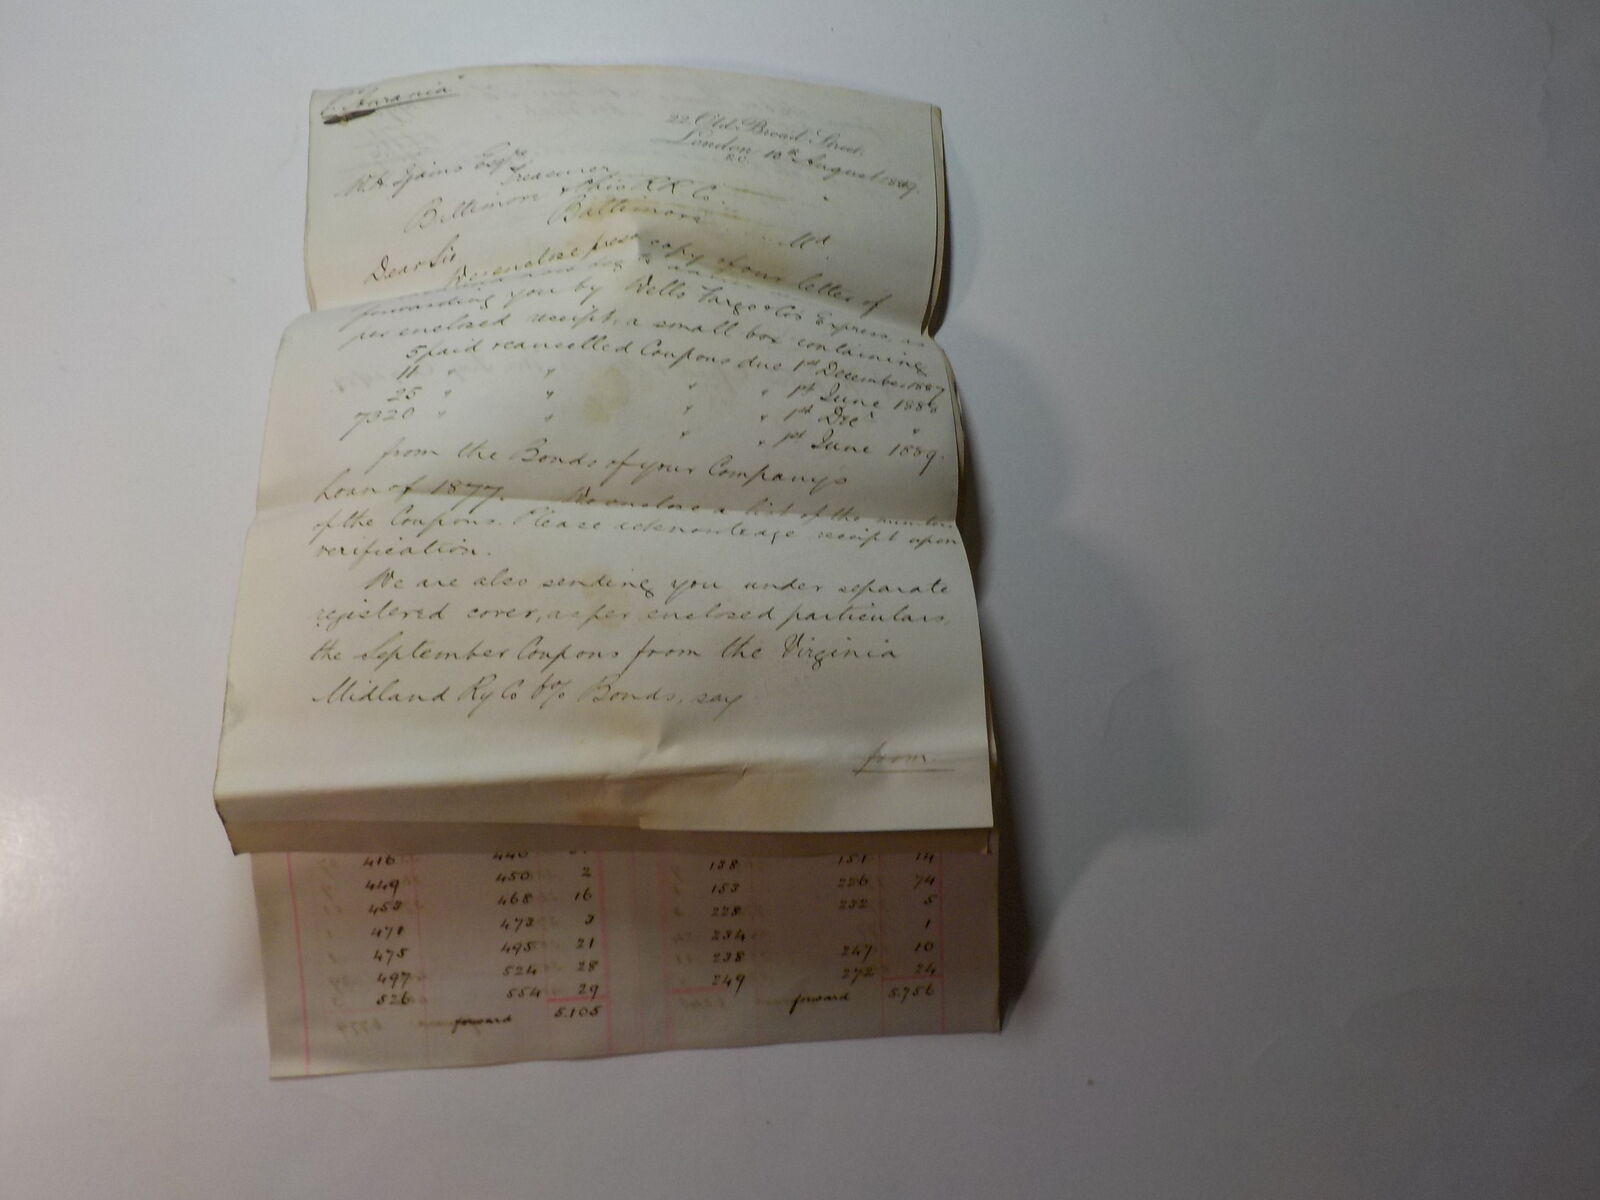 22, Old Broad Street,
London 10th August 1889.
E.C.
W. H. Ijams Esqre
Treasurer
Baltimore & Ohio R R Co.
Baltimore
Md
Dear Sir
We enclose press copy of our letter of
forwarding you by Wells Fargo & Cos Express, as
per enclosed receipt, a small box containing
5 paid & cancelled Coupons due 1st December 1887
11 " " " " 1st June 1888
25 " " " " 1st Decr "
7320 " " " " 1st June 1889.
from the Bonds of your Company's
Loan of 1877. We enclose a list of the numbers
of the Coupons. Please acknowledge receipt upon
verification.
We are also sending you under separate
registered cover, as per enclosed particulars,
the September Coupons from the Virginia
Midland Ry Co 6% Bonds, say
from
416 440 138 151 14
449 450 2 153 226 74
453 468 16 228 232 5
471 473 3 234 1
475 495 21 238 247 10
497 524 28 249 272 24
526 554 29 forward 5.756
forward 5.105